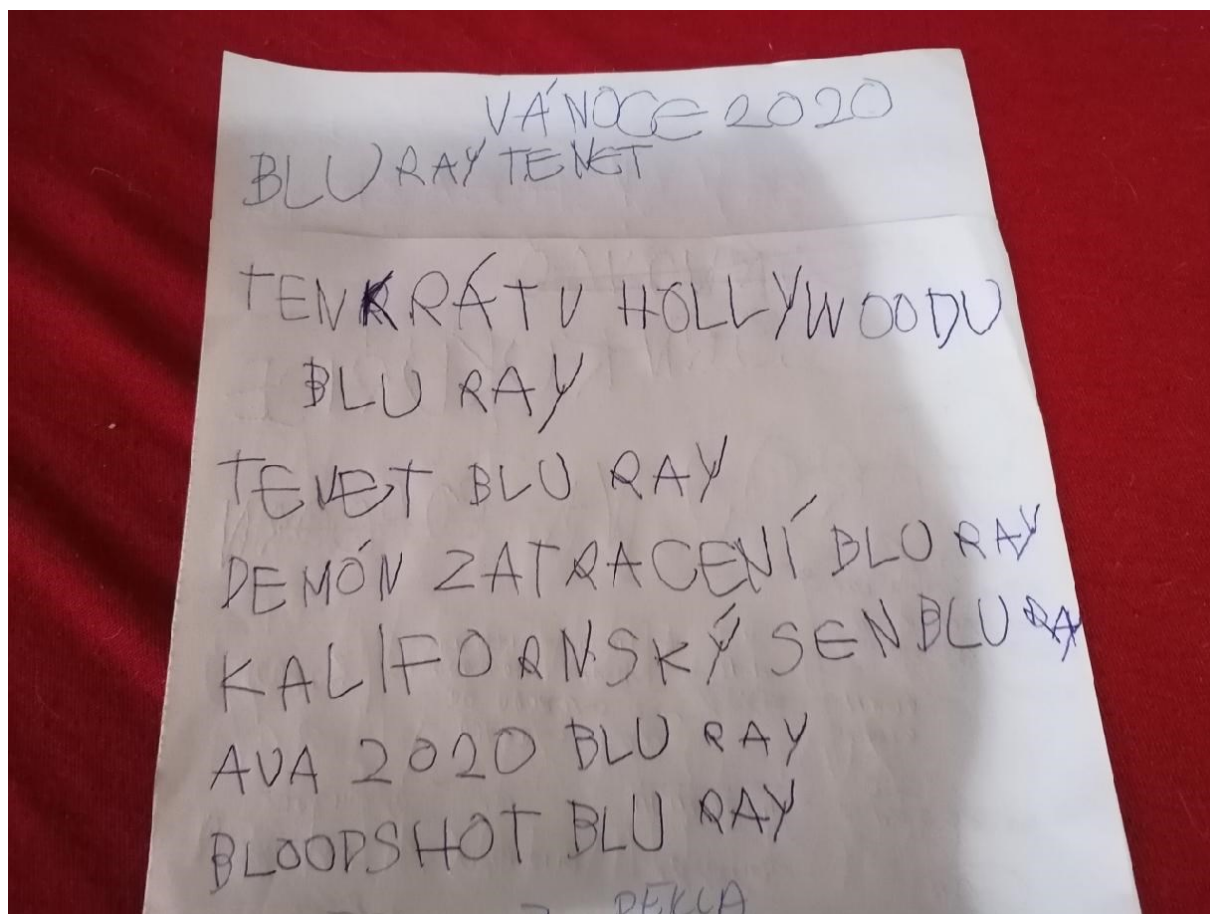 VÁNOCE 2020
BLU RAY TENET
TENKRÁT V HOLLYWOODU
BLU RAY
TENET BLU RAY
DEMÓN ZATRACENÍ BLU RAY
KALIFORNSKÝ SEN BLU RA
AVA 2020 BLU RAY
BLOODSHOT BLU RAY